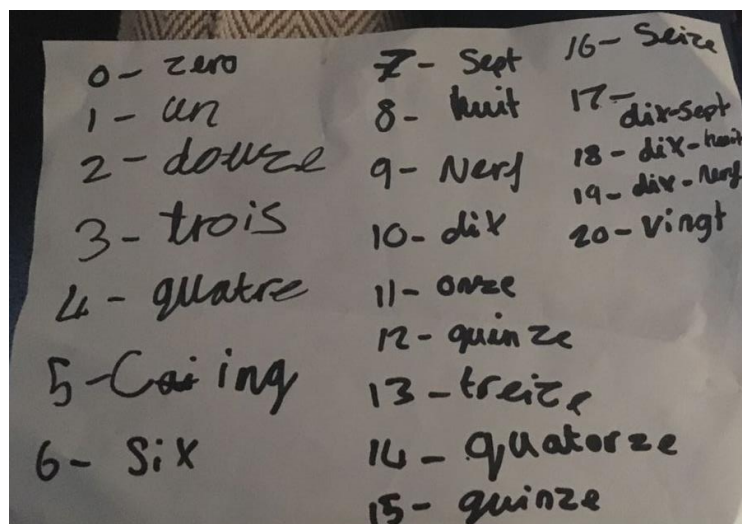 0 - zero
1 - un
2 - douze
3 - trois
4 - quatre
5 - Caiing
6 - Six
7 - Sept
8 - huit
9 - Nerf
10 - dix
11 - onze
12 - quinze
13 - treize
14 - quatorze
15 - quinze
16 - Seize
17 - dix-sept
18 - dix-huit
19 - dix-Nerf
20 - vingt